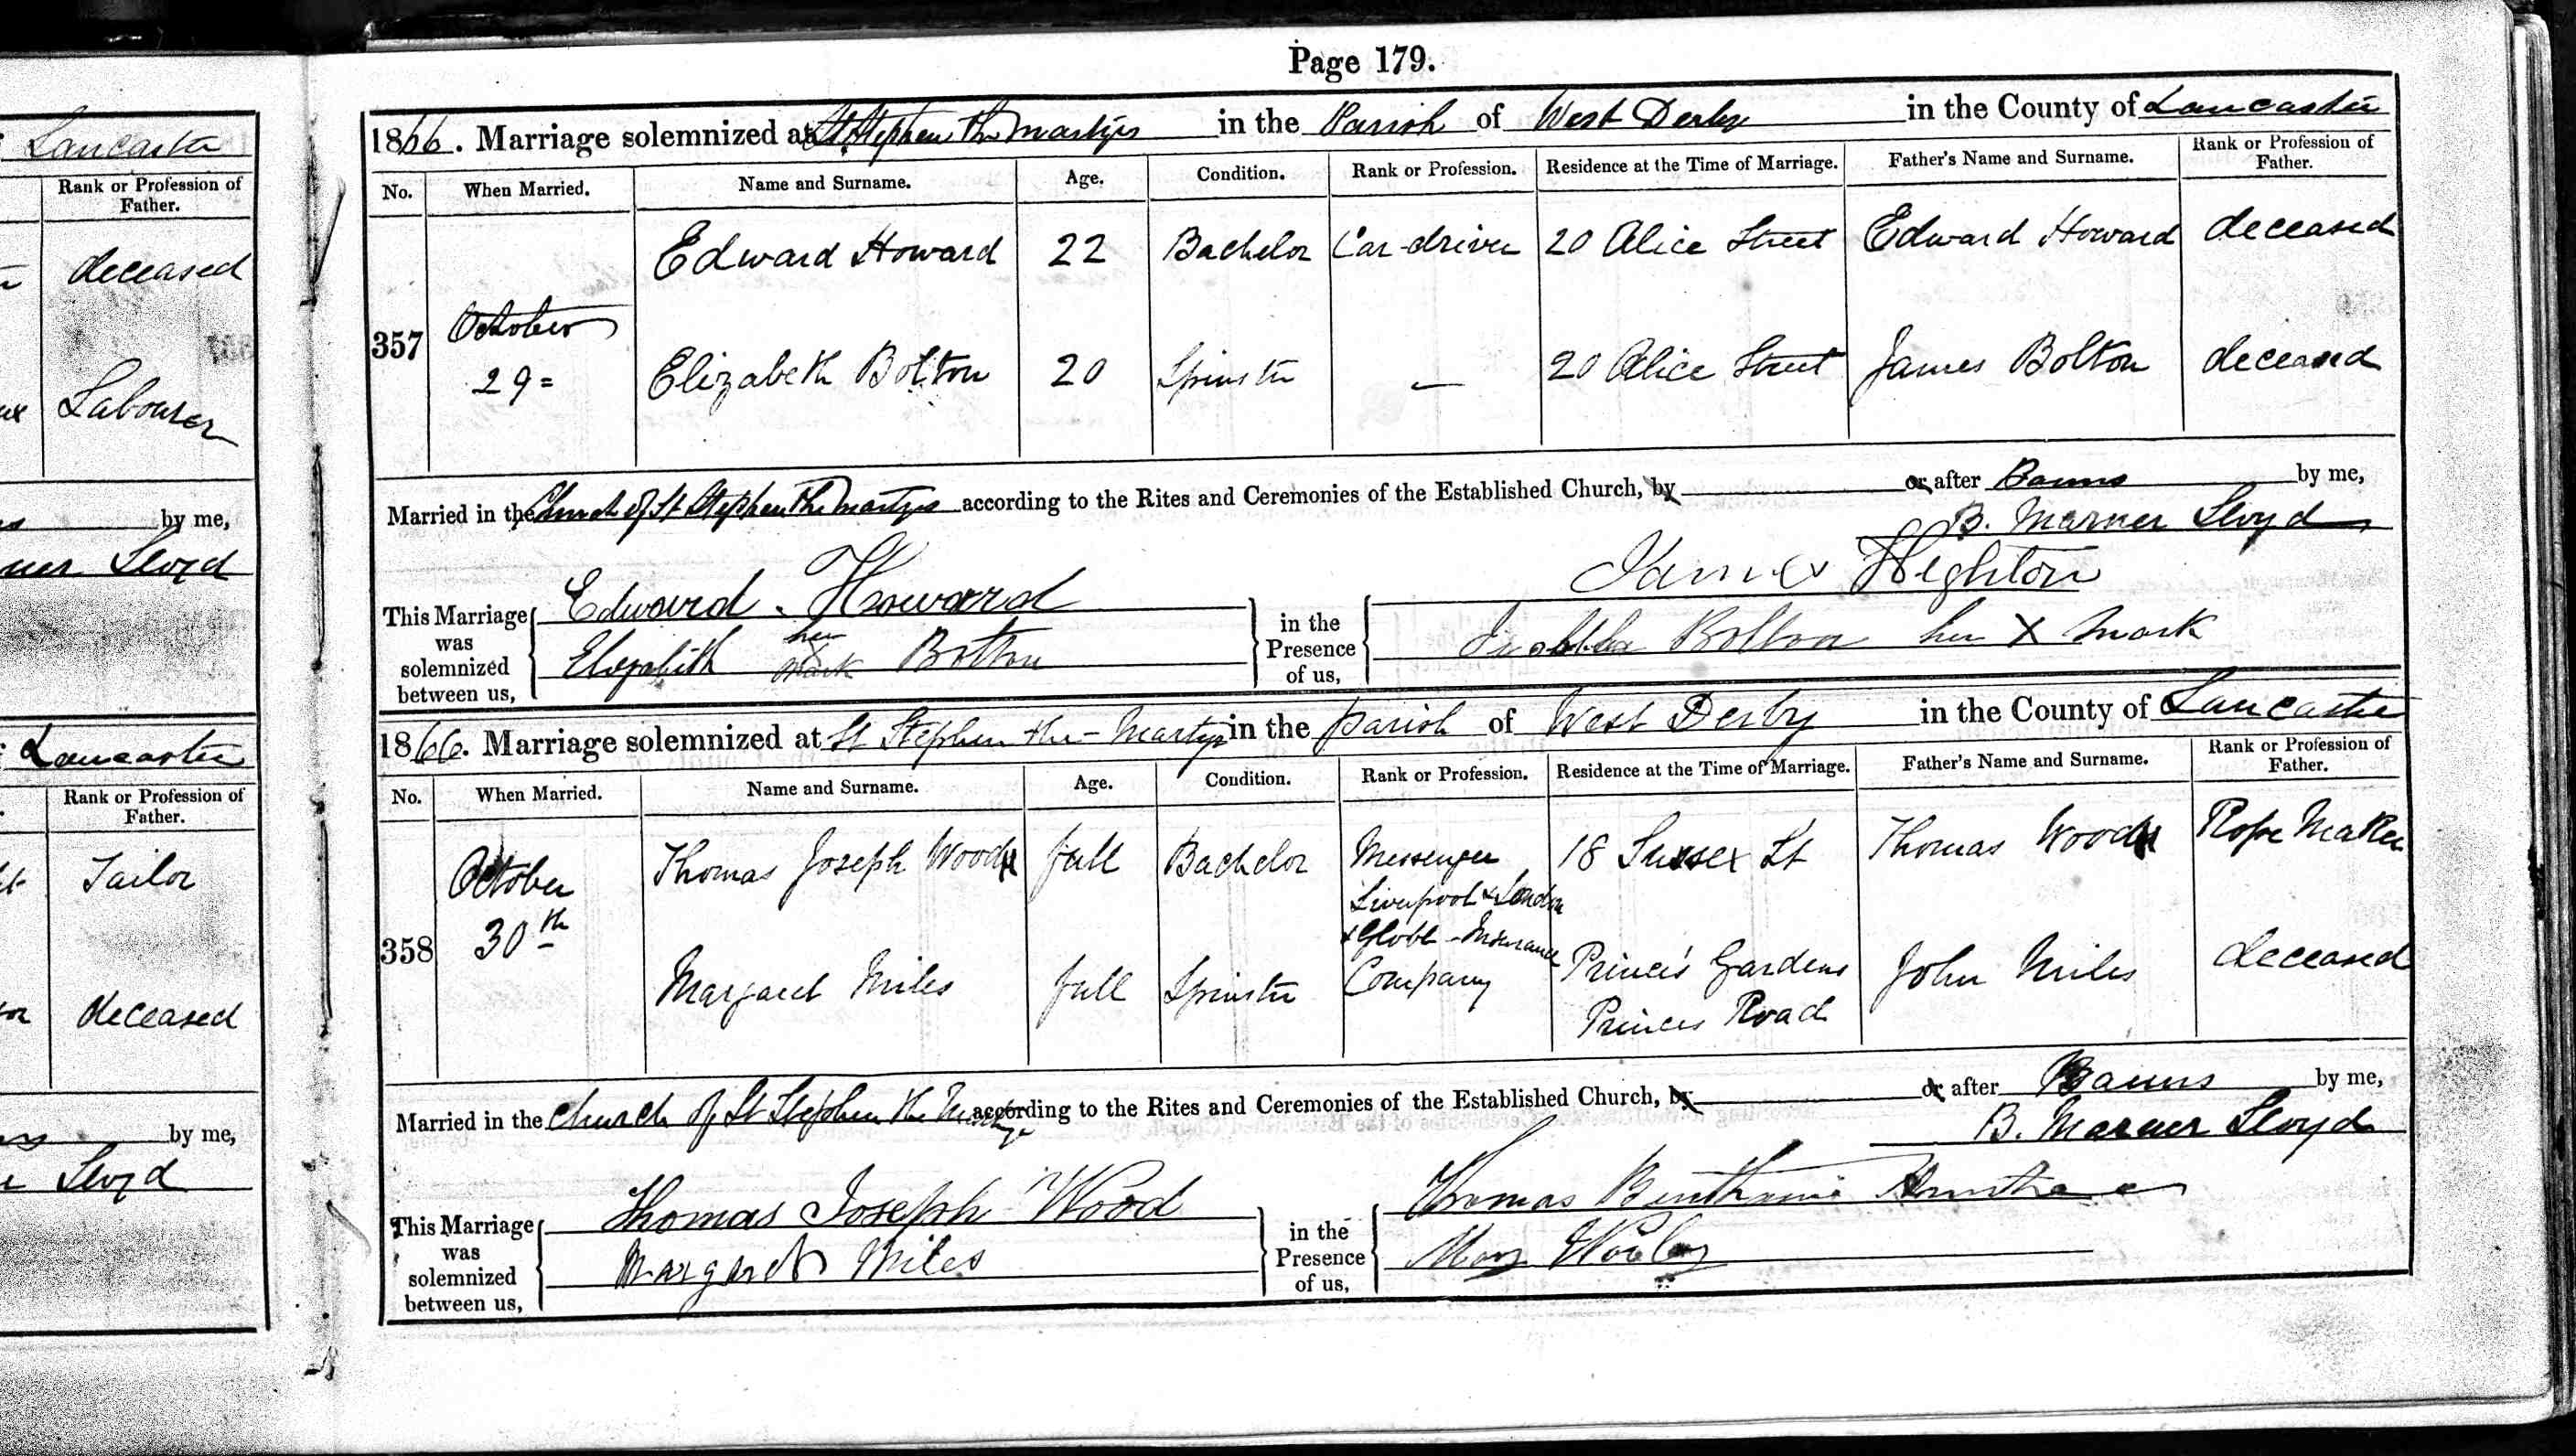 Page 179.
Lancaster
Rank or Profession of
Father.
deceased
Labourer
by me,
Lloyd
Lancaster
Rank or Profession of
Father.
Tailor
deceased
by me,
Lloyd
1866. Marriage solemnized at St Stephen the Martyr in the Parish of West Derby in the County of Lancaster
No. When Married. Name and Surname. Age. Condition. Rank or Profession. Residence at the Time of Marriage. Father's Name and Surname. Rank or Profession of Father.
Edward Howard 22 Bachelor Car-driver 20 Alice Street Edward Howard deceased
357 October
29 = Elizabeth Bolton 20 Spinster — 20 Alice Street James Bolton deceased
Married in the Church of St Stephen the Martyr according to the Rites and Ceremonies of the Established Church, by or after Banns by me,
B. Marner Lloyd
This Marriage was solemnized between us, Edward Howard in the Presence of us, James Heghton
Elizabeth her X mark Bolton Bolton her X mark
1866. Marriage solemnized at St Stephen-the-Martyr in the parish of West Derby in the County of Lancaster
No. When Married. Name and Surname. Age. Condition. Rank or Profession. Residence at the Time of Marriage. Father's Name and Surname. Rank or Profession of Father.
October Thomas Joseph Wood full Bachelor Messenger 18 Sussex St Thomas Wood Rope Maker
Liverpool & London
358 30th & Globe-Insurance
Margaret Miles full Spinster Company Prince's Gardens John Miles deceased
Princes Road
Married in the Church of St Stephen the Martyr according to the Rites and Ceremonies of the Established Church, by or after Banns by me,
B. Marner Lloyd
This Marriage was solemnized between us, Thomas Joseph Wood in the Presence of us, Thomas
Margaret Miles Mary